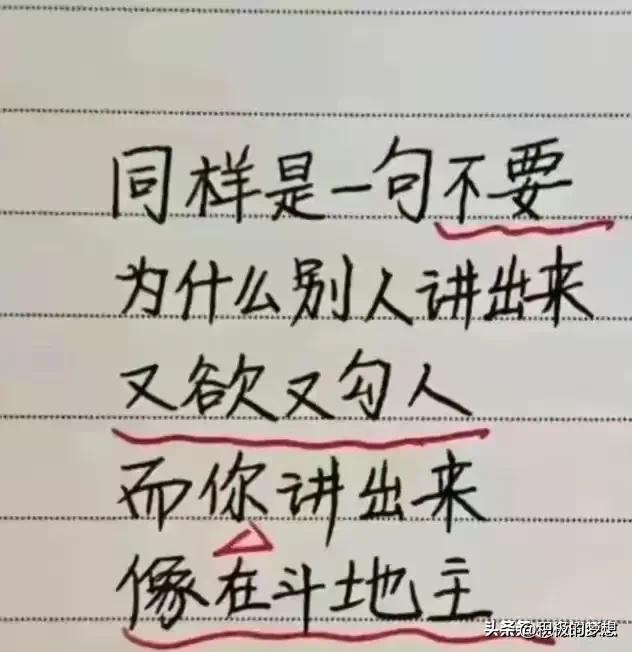 同样是一句不要
为什么别人讲出来
又欲又勾人
而你讲出来
像在斗地主
头条 @积极的梦想